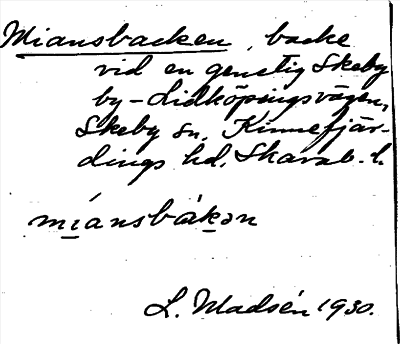 Miansbacken, backe
vid en genstig Skeby
by-Lidköpingsvägen,
Skeby sn, Kinnefjär-
dings hd, Skarab. l.
míansbákən
L. Madsén 1930.